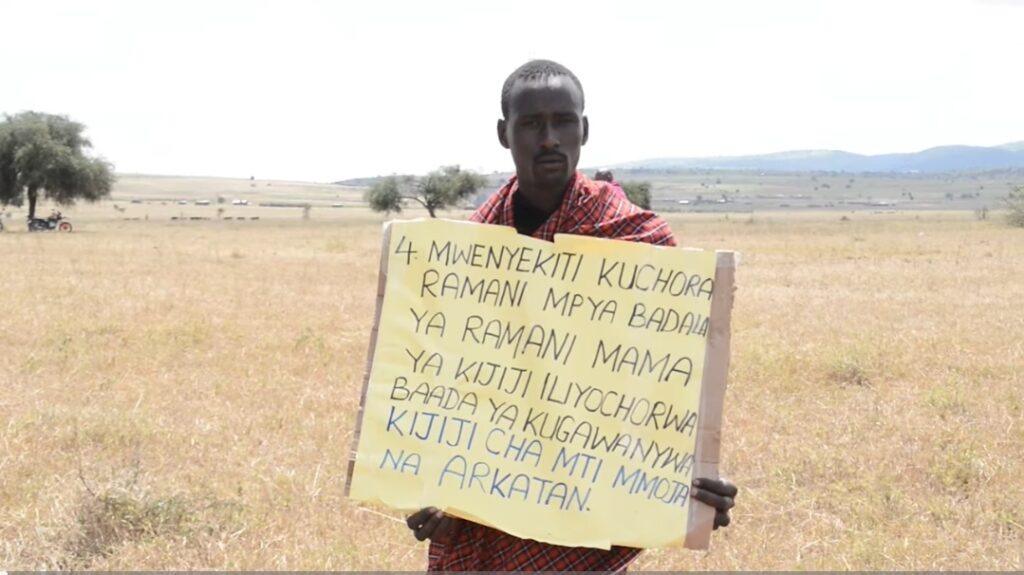 4. MWENYEKITI KUCHORA
RAMANI MPYA BADALA
YA RAMANI MAMA
YA KIJIJI ILIYOCHORWA
BAADA YA KUGAWANYWA
KIJIJI CHA MTI MMOJA
NA ARKATAN.